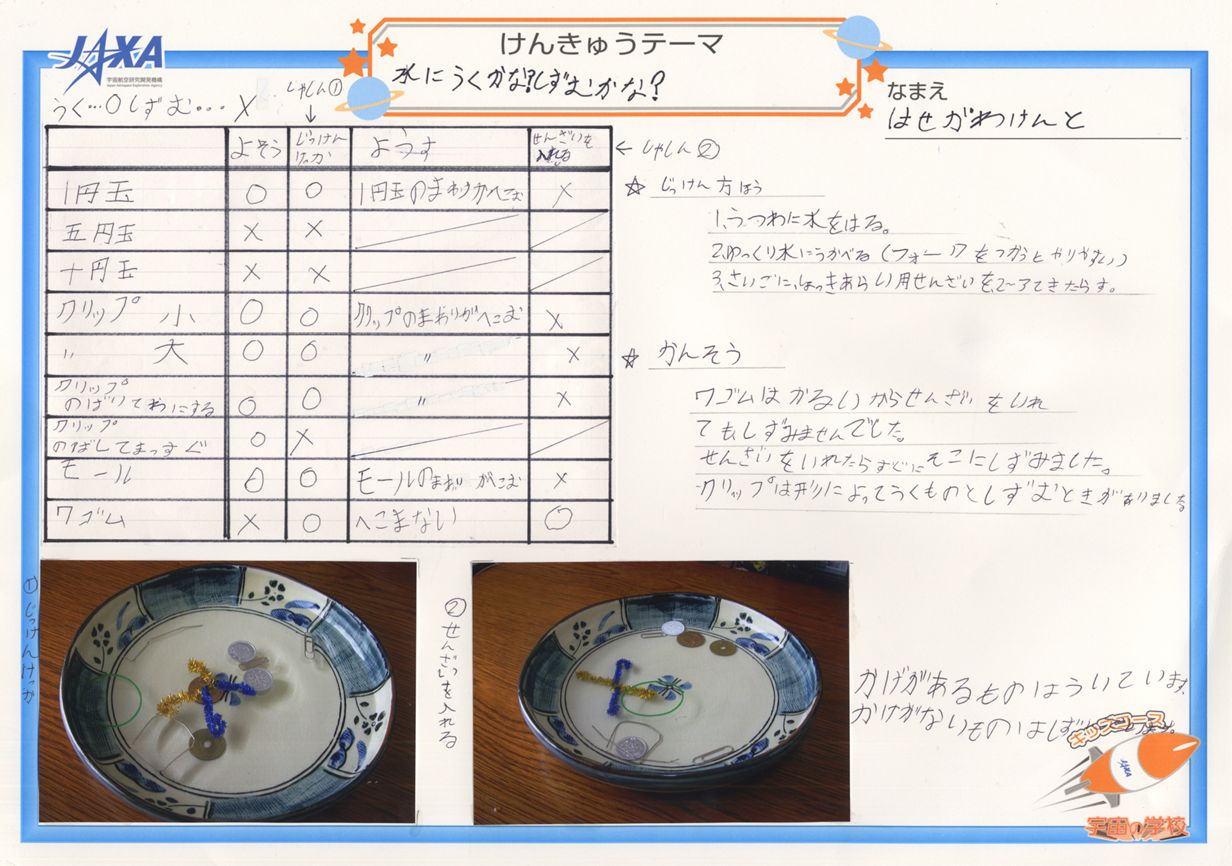 JAXA
宇宙航空研究開発機構
Japan Aerospace Exploration Agency
けんきゅうテーマ
水にうくかな?しずむかな?
なまえ
はせがわけんと
うく…○しずむ…×
しゃしん①
↓
よそう じっけんけっか ようす せんざいを入れる
← しゃしん②
1円玉 ○ ○ 1円玉のまわりがへこむ ×
五円玉 × ×
十円玉 × ×
クリップ 小 ○ ○ クリップのまわりがへこむ ×
〃 大 ○ ○ 〃 ×
クリップ のばしてわにする ○ ○ 〃 ×
クリップ のばしてまっすぐ ○ ×
モール ○ ○ モールのまわりがへこむ ×
ワゴム × ○ へこまない ○
☆ じっけん方ほう
1.うつわに水をはる。
2.ゆっくり水にうかべる(フォークをつかうとやりやすい)
3.さいごに、しょっきあらい用せんざいを2〜3てきたらす。
☆ かんそう
ワゴムはかるいからせんざいをいれ
てもしずみませんでした。
せんざいをいれたらすぐにそこにしずみました。
クリップは形によってうくものとしずむときがありました
①じっけんけっか
②せんざいを入れる
かげがあるものはういています。
かげがないものはしず
キッズコース
JAXA
宇宙の学校